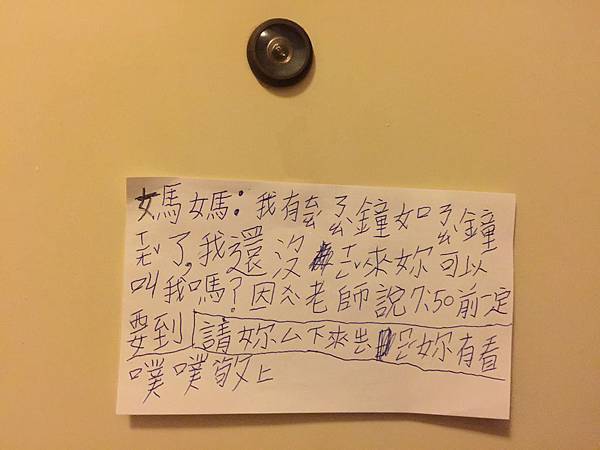 媽媽:我有鐘如鐘
了,我還沒來妳可以
叫我嗎?因老師說7:50前一定
要到請妳ㄙ下來妳有看
噗噗敬上